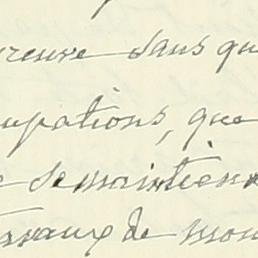 preuve sans qu
cupations, que
se maintien
travaux de mon